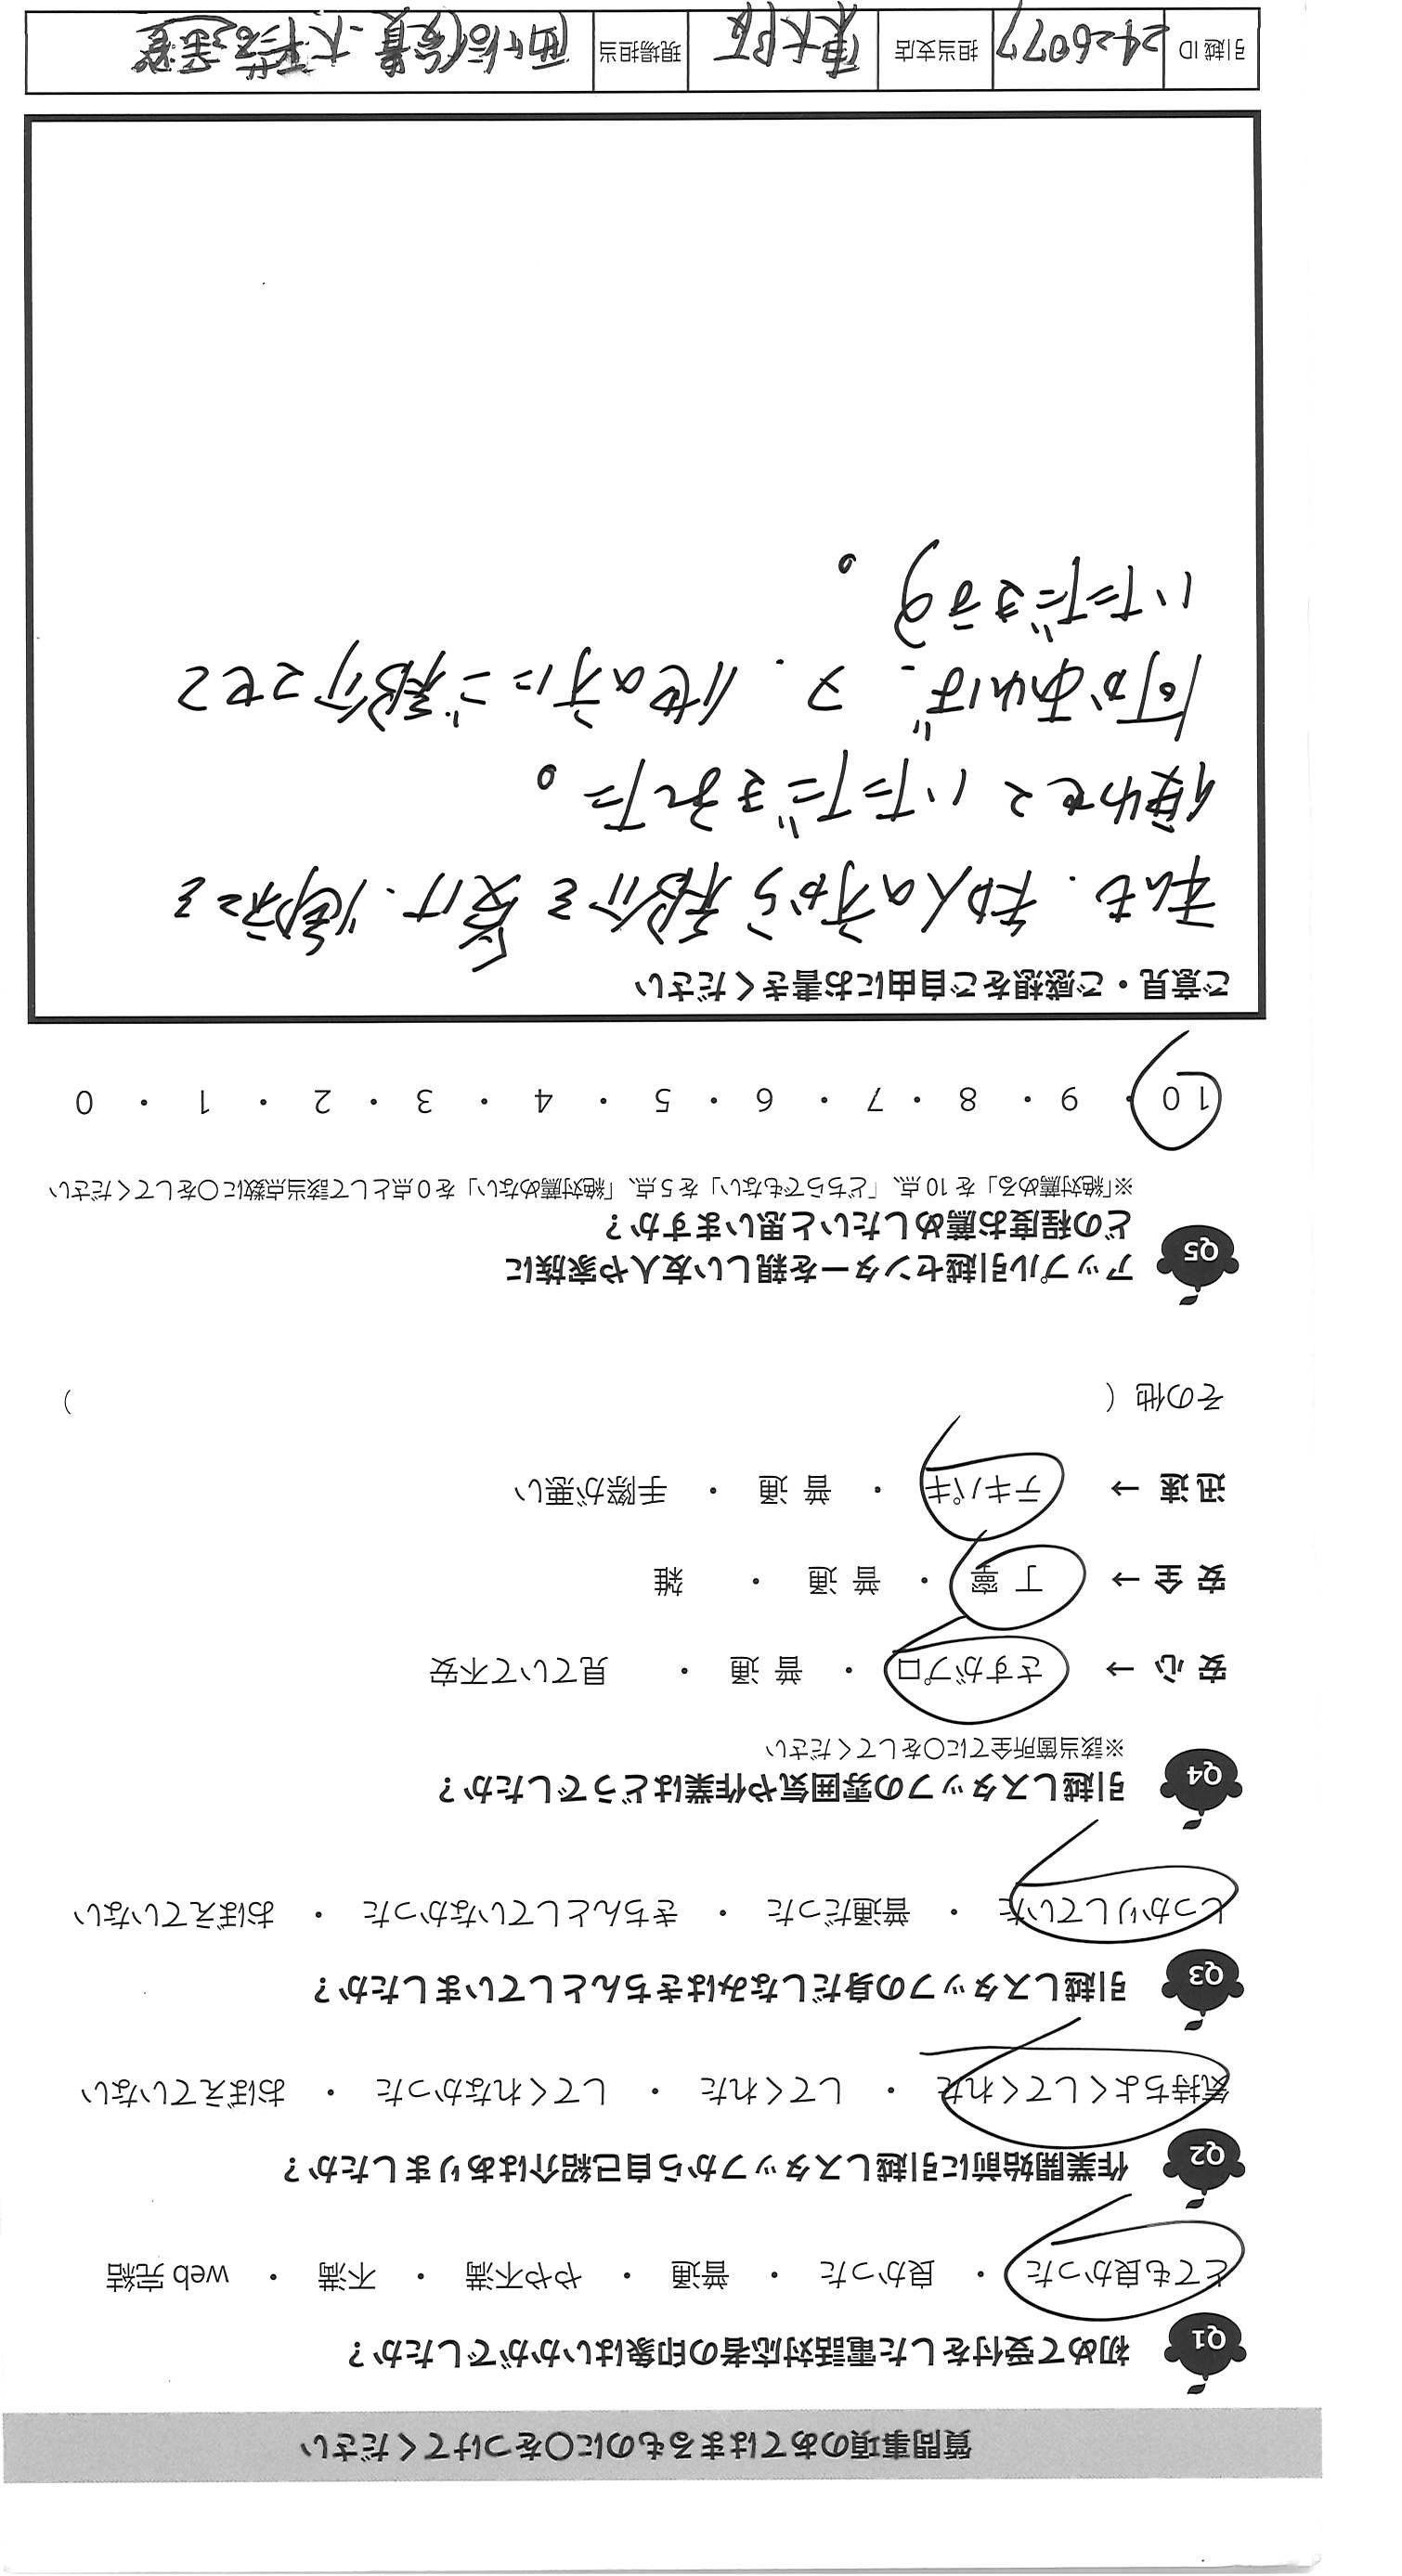 質問事項のあてはまるものに〇をつけてください
Q1 初めて受付をした電話対応者の印象はいかがでしたか？
とても良かった ・ 良かった ・ 普通 ・ やや不満 ・ 不満 ・ web 完結
Q2 作業開始前に引越しスタッフから自己紹介はありましたか？
気持ちよくしてくれた ・ してくれた ・ してくれなかった ・ おぼえていない
Q3 引越しスタッフの身だしなみはきちんとしていましたか？
しっかりしていた ・ 普通だった ・ きちんとしていなかった ・ おぼえていない
Q4 引越しスタッフの雰囲気や作業はどうでしたか？
※該当箇所全てに〇をしてください
安心 → さすがプロ ・ 普通 ・ 見ていて不安
安全 → 丁寧 ・ 普通 ・ 雑
迅速 → テキパキ ・ 普通 ・ 手際が悪い
その他（ ）
Q5 アップル引越センターを親しい友人や家族に
どの程度お薦めしたいと思いますか？
※「絶対薦める」を 10 点、「どちらでもない」を 5 点、「絶対薦めない」を 0 点として該当点数に〇をしてください
10 ・ 9 ・ 8 ・ 7 ・ 6 ・ 5 ・ 4 ・ 3 ・ 2 ・ 1 ・ 0
ご意見・ご感想をご自由にお書きください
私も、知人の方から紹介を受け、御社を
使わせていただきました。
何かあれば、又、他の方にご紹介させて
いただきます。
引越 ID 2426077 担当支店 東大阪 現場担当